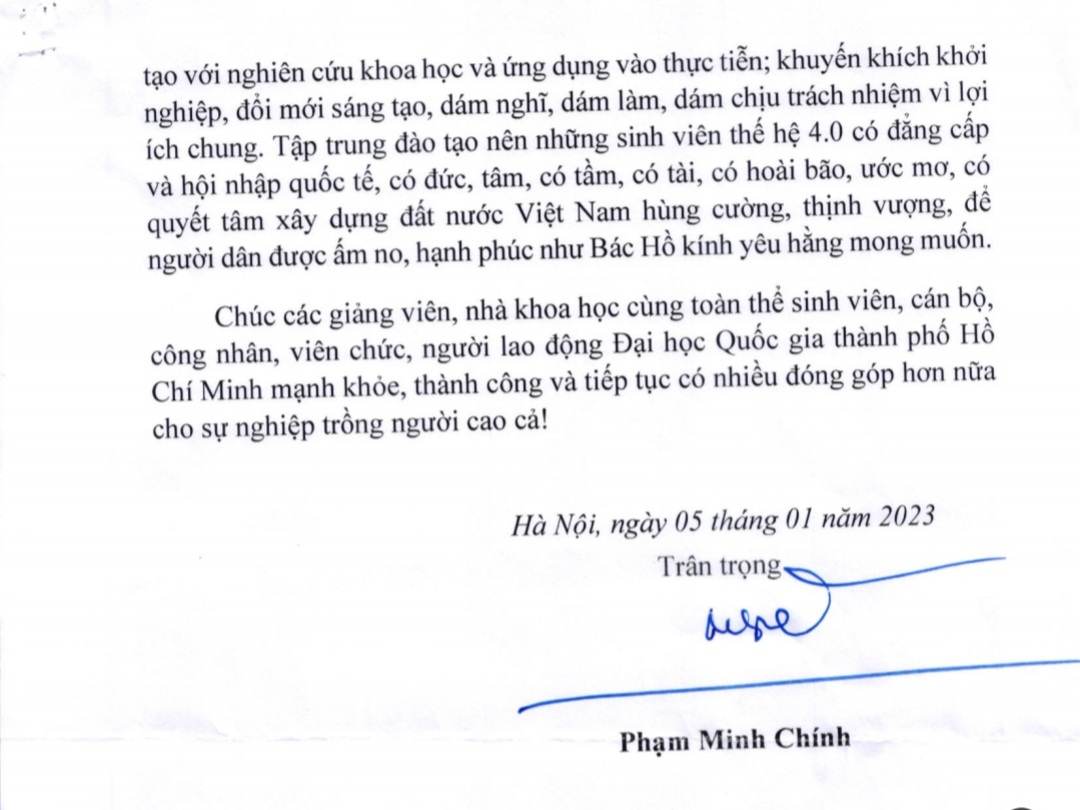 tạo với nghiên cứu khoa học và ứng dụng vào thực tiễn; khuyến khích khởi
nghiệp, đổi mới sáng tạo, dám nghĩ, dám làm, dám chịu trách nhiệm vì lợi
ích chung. Tập trung đào tạo nên những sinh viên thế hệ 4.0 có đẳng cấp
và hội nhập quốc tế, có đức, tâm, có tầm, có tài, có hoài bão, ước mơ, có
quyết tâm xây dựng đất nước Việt Nam hùng cường, thịnh vượng, để
người dân được ấm no, hạnh phúc như Bác Hồ kính yêu hằng mong muốn.
Chúc các giảng viên, nhà khoa học cùng toàn thể sinh viên, cán bộ,
công nhân, viên chức, người lao động Đại học Quốc gia thành phố Hồ
Chí Minh mạnh khỏe, thành công và tiếp tục có nhiều đóng góp hơn nữa
cho sự nghiệp trồng người cao cả!
Hà Nội, ngày 05 tháng 01 năm 2023
Trân trọng
Phạm Minh Chính